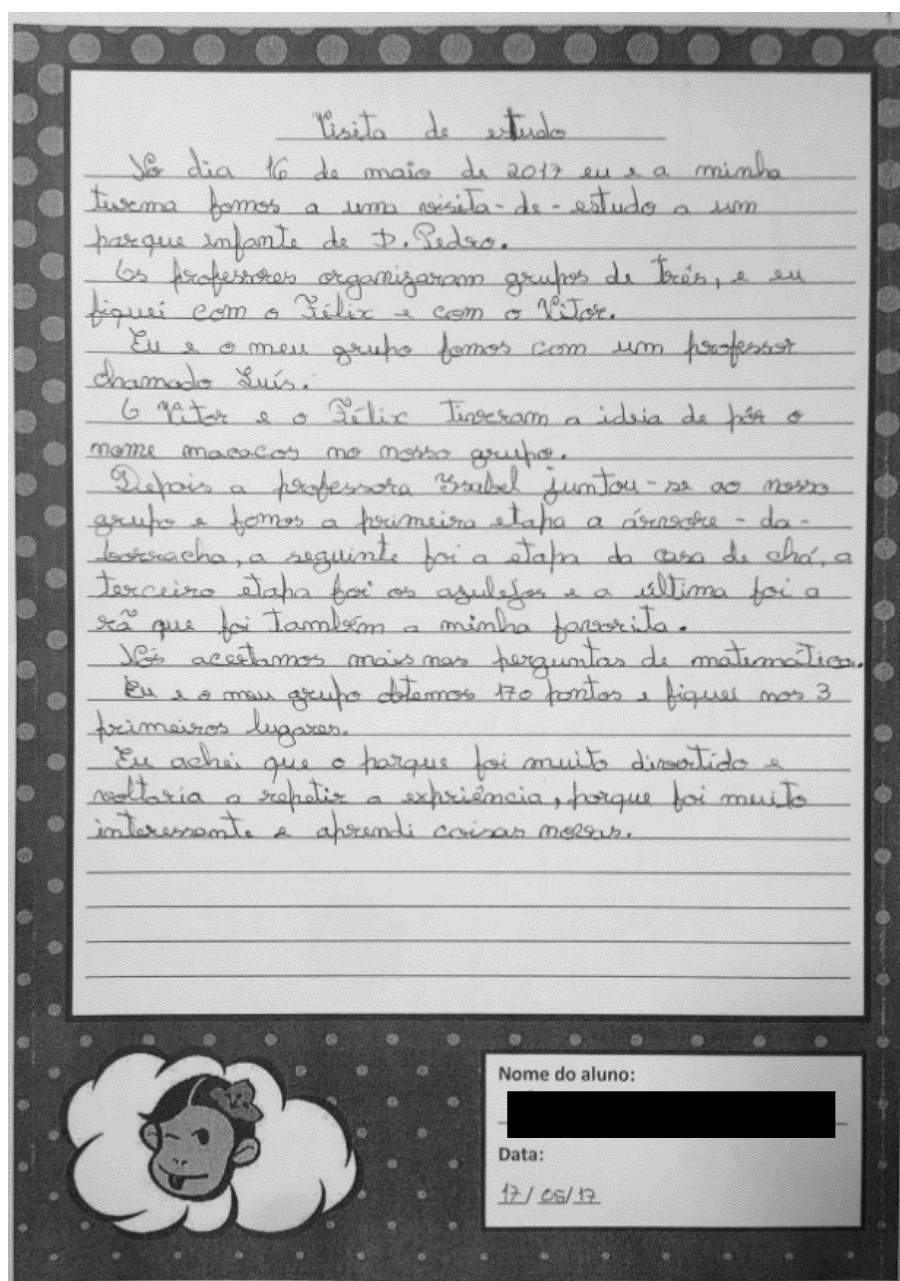 Visita de estudo
No dia 16 de maio de 2017 eu e a minha
turma fomos a uma visita-de-estudo a um
parque infante de D. Pedro.
Os professores organizaram grupos de três, e eu
fiquei com o Félix e com o Vitor.
Eu e o meu grupo fomos com um professor
chamado Luís.
O Vitor e o Félix tiveram a ideia de pôr o
nome macacos no nosso grupo.
Depois a professora Isabel juntou-se ao nosso
grupo e fomos a primeira etapa a árvore-da-
borracha, a seguinte foi a etapa da casa de chá, a
terceiro etapa foi os azulejos e a última foi a
rã que foi também a minha favorita.
Nós acertamos mais nas perguntas de matemática.
Eu e o meu grupo obtemos 170 pontos e fiquei nos 3
primeiros lugares.
Eu achei que o parque foi muito divertido e
voltaria a repetir a expriência, porque foi muito
interessante e aprendi coisas novas.
Nome do aluno:
Data:
17/05/17